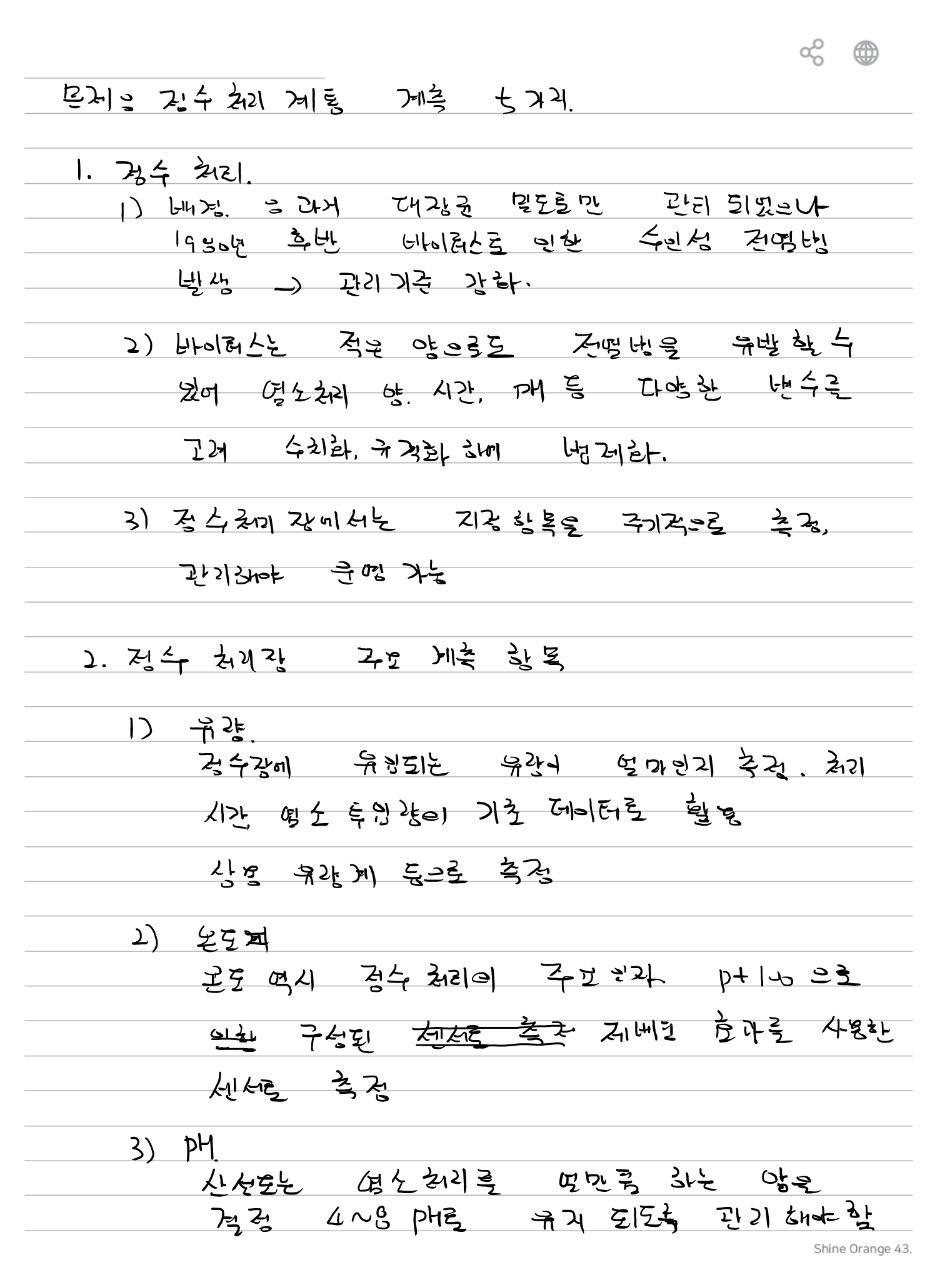 문제은 정수 처리 계통 계측 5가지.
1. 정수 처리.
1) 배경. 은 과거 대장균 밀도률만 관리 되었으나
1980년 후반 바이러스로 인한 수인성 전염병
발생 → 관리 기준 강화.
2) 바이러스는 적은 양으로도 전염병을 유발 할 수
있어 염소처리 양. 시간, PH 등 다양한 변수를
고려 수치화, 규격화 하여 법제화.
3) 정수처리 장에서는 지정 항목을 주기적으로 측정,
관리해야 운영 가능
2. 정수 처리장 주요 계측 항목
1) 유량.
정수장에 유입되는 유량이 얼마인지 측정. 처리
시간, 염소 투입량이 기초 데이터로 활용
상용 유량계 등으로 측정
2) 온도
온도 역시 정수 처리의 주요 인자 으로
구성된 제베크 효과를 사용한
센서로 측정
3) PH.
산선도는 염소처리를 얼만큼 하는 양을
결정 4~8 PH로 유지 되도록 관리 해야 함
Shine Orange 43.